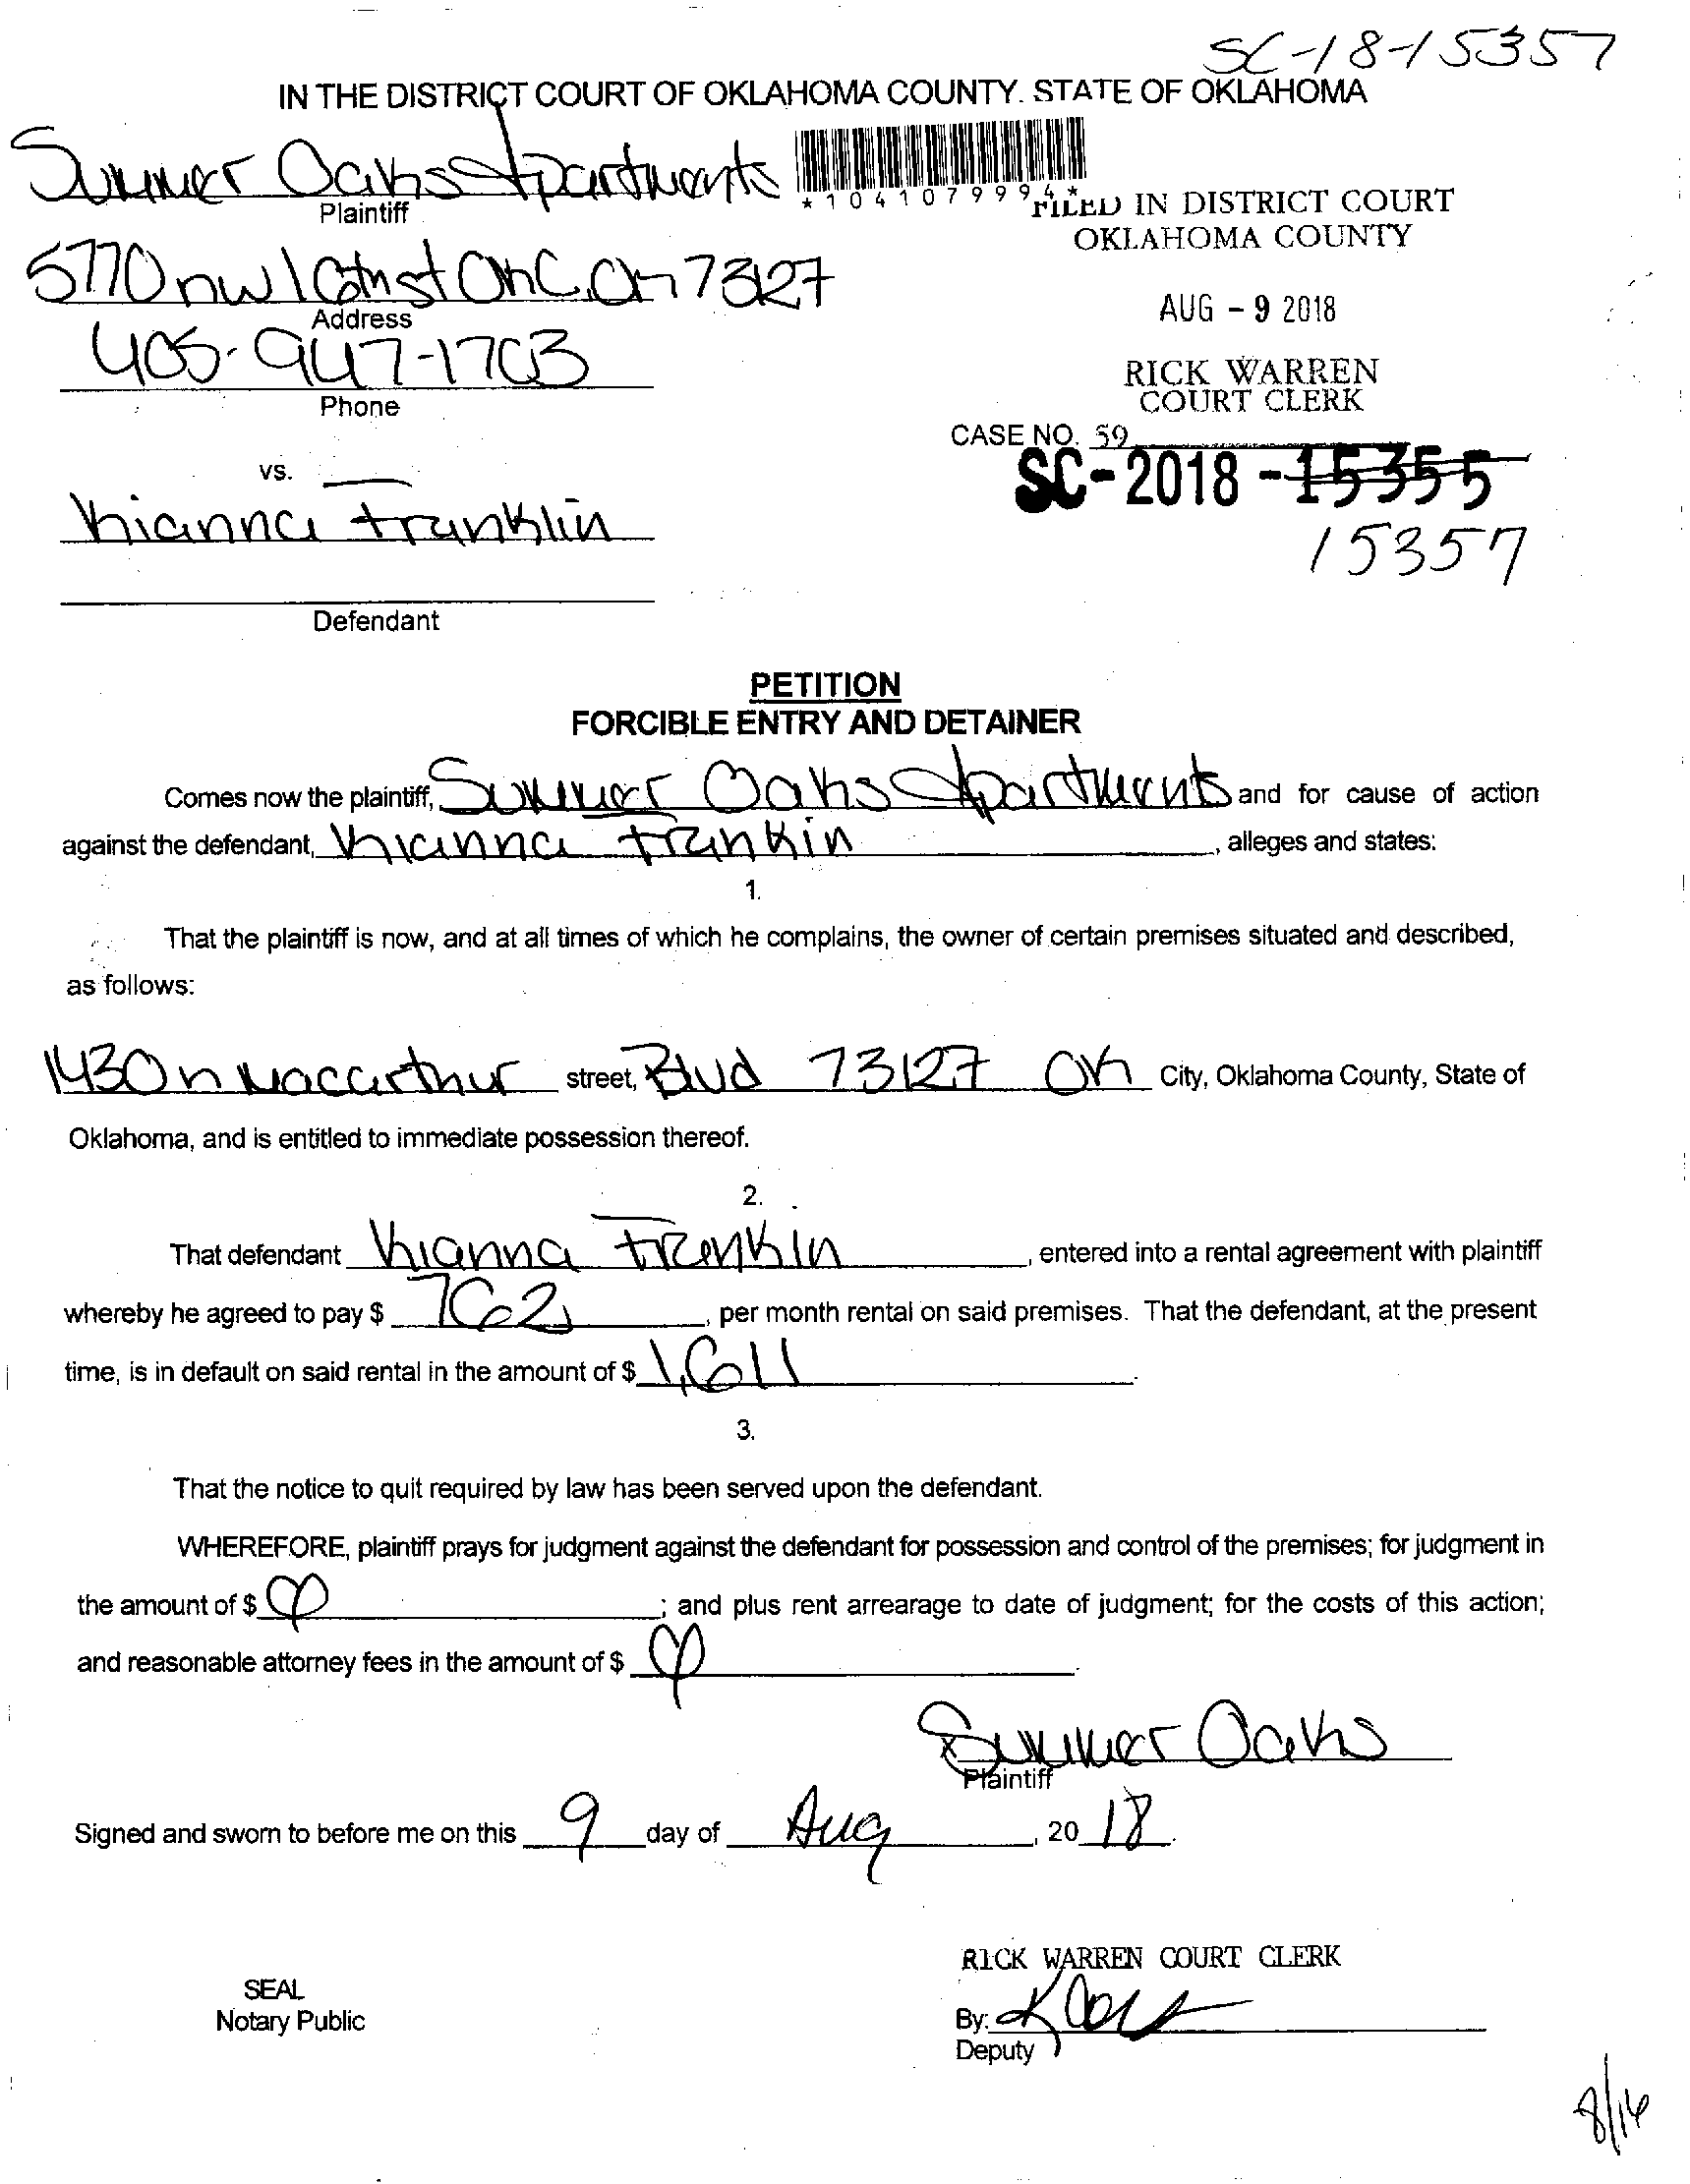 SC-18-15357
IN THE DISTRICT COURT OF OKLAHOMA COUNTY. STATE OF OKLAHOMA
Summer Oaks Apartments
*1041079994*
Plaintiff
FILED IN DISTRICT COURT
OKLAHOMA COUNTY
5770 nw 16th st OKC, OK 73127
Address
AUG - 9 2018
405-947-1703
Phone
RICK WARREN
COURT CLERK
CASE NO. 59
SC-2018-15355
15357
vs.
Kianna Franklin
Defendant
PETITION
FORCIBLE ENTRY AND DETAINER
Comes now the plaintiff, Summer Oaks Apartments and for cause of action
against the defendant, Kianna Frankin, alleges and states:
1.
That the plaintiff is now, and at all times of which he complains, the owner of certain premises situated and described,
as follows:
1430 n Macarthur street, Blvd 73127 OK City, Oklahoma County, State of
Oklahoma, and is entitled to immediate possession thereof.
2.
That defendant Kianna Frankin, entered into a rental agreement with plaintiff
whereby he agreed to pay $ 762, per month rental on said premises. That the defendant, at the present
time, is in default on said rental in the amount of $ 1,611.
3.
That the notice to quit required by law has been served upon the defendant.
WHEREFORE, plaintiff prays for judgment against the defendant for possession and control of the premises; for judgment in
the amount of $ φ; and plus rent arrearage to date of judgment; for the costs of this action;
and reasonable attorney fees in the amount of $ φ.
x Summer Oaks
Plaintiff
Signed and sworn to before me on this 9 day of Aug, 20 18.
RICK WARREN COURT CLERK
SEAL
Notary Public
By:
Deputy
8/16